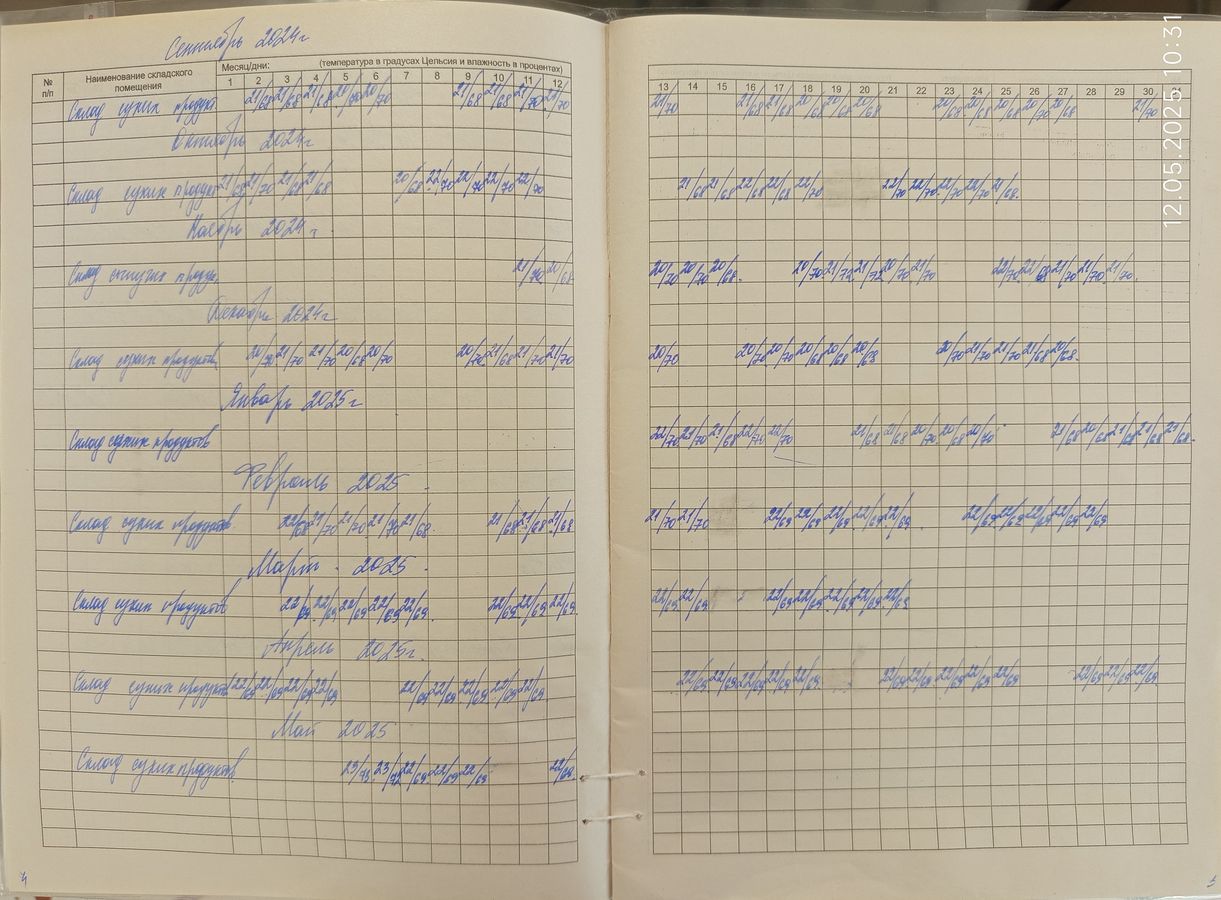 Сентябрь 2024г
№ п/п Наименование складского помещения Месяц/дни: (температура в градусах Цельсия и влажность в процентах)
1 2 3 4 5 6 7 8 9 10 11 12 13 14 15 16 17 18 19 20 21 22 23 24 25 26 27 28 29 30
Склад сухих продукт 21/68 21/68 21/68 20/70 20/70 21/68 21/68 21/70 21/70 21/70 21/68 21/68 20/68 20/68 20/68 20/68 20/68 20/68 20/70 20/68 21/70
Октябрь 2024г
Склад сухих продукт 21/68 21/70 21/68 21/68 20/68 22/70 22/70 22/70 22/70 21/68 21/68 22/68 22/68 22/70 22/70 22/70 22/70 22/70 21/68
Ноябрь 2024г
Склад 21/70 20/68 20/70 20/70 20/68 20/70 21/72 21/72 20/70 21/70 22/70 22/68 21/70 21/70 21/70
Декабрь 2024г
Склад сухих продуктов 20/70 21/70 21/70 20/68 20/70 20/70 21/68 21/70 21/70 20/70 20/70 20/70 20/68 20/68 20/68 20/70 21/70 21/70 21/68 20/68
Январь 2025г
Склад сухих продуктов 22/70 21/70 21/68 22/70 22/70 21/68 21/68 20/70 20/68 20/70 21/68 20/68 21/68 21/68 21/68
Февраль 2025
Склад сухих продуктов 22/68 21/70 21/70 21/70 21/68 21/68 21/68 21/68 21/70 21/70 22/69 22/69 22/69 22/69 22/69 22/69 22/69 22/69 22/69 22/69
Март 2025
Склад сухих продуктов 22/69 22/69 22/69 22/69 22/69 22/69 22/69 22/69 22/69 22/69 22/69 22/69 22/69 22/69 22/69
Апрель 2025г.
Склад сухих продуктов 22/69 22/69 22/69 22/69 22/69 22/69 22/69 22/69 22/69 22/69 22/69 22/69 22/69 21/69 22/69 22/69 22/69 22/69 22/69 22/69 22/69 22/69
Май 2025
Склад сухих продуктов 23/73 23/72 22/69 22/69 22/69 22/68
4
5
12.05.2025 10:31